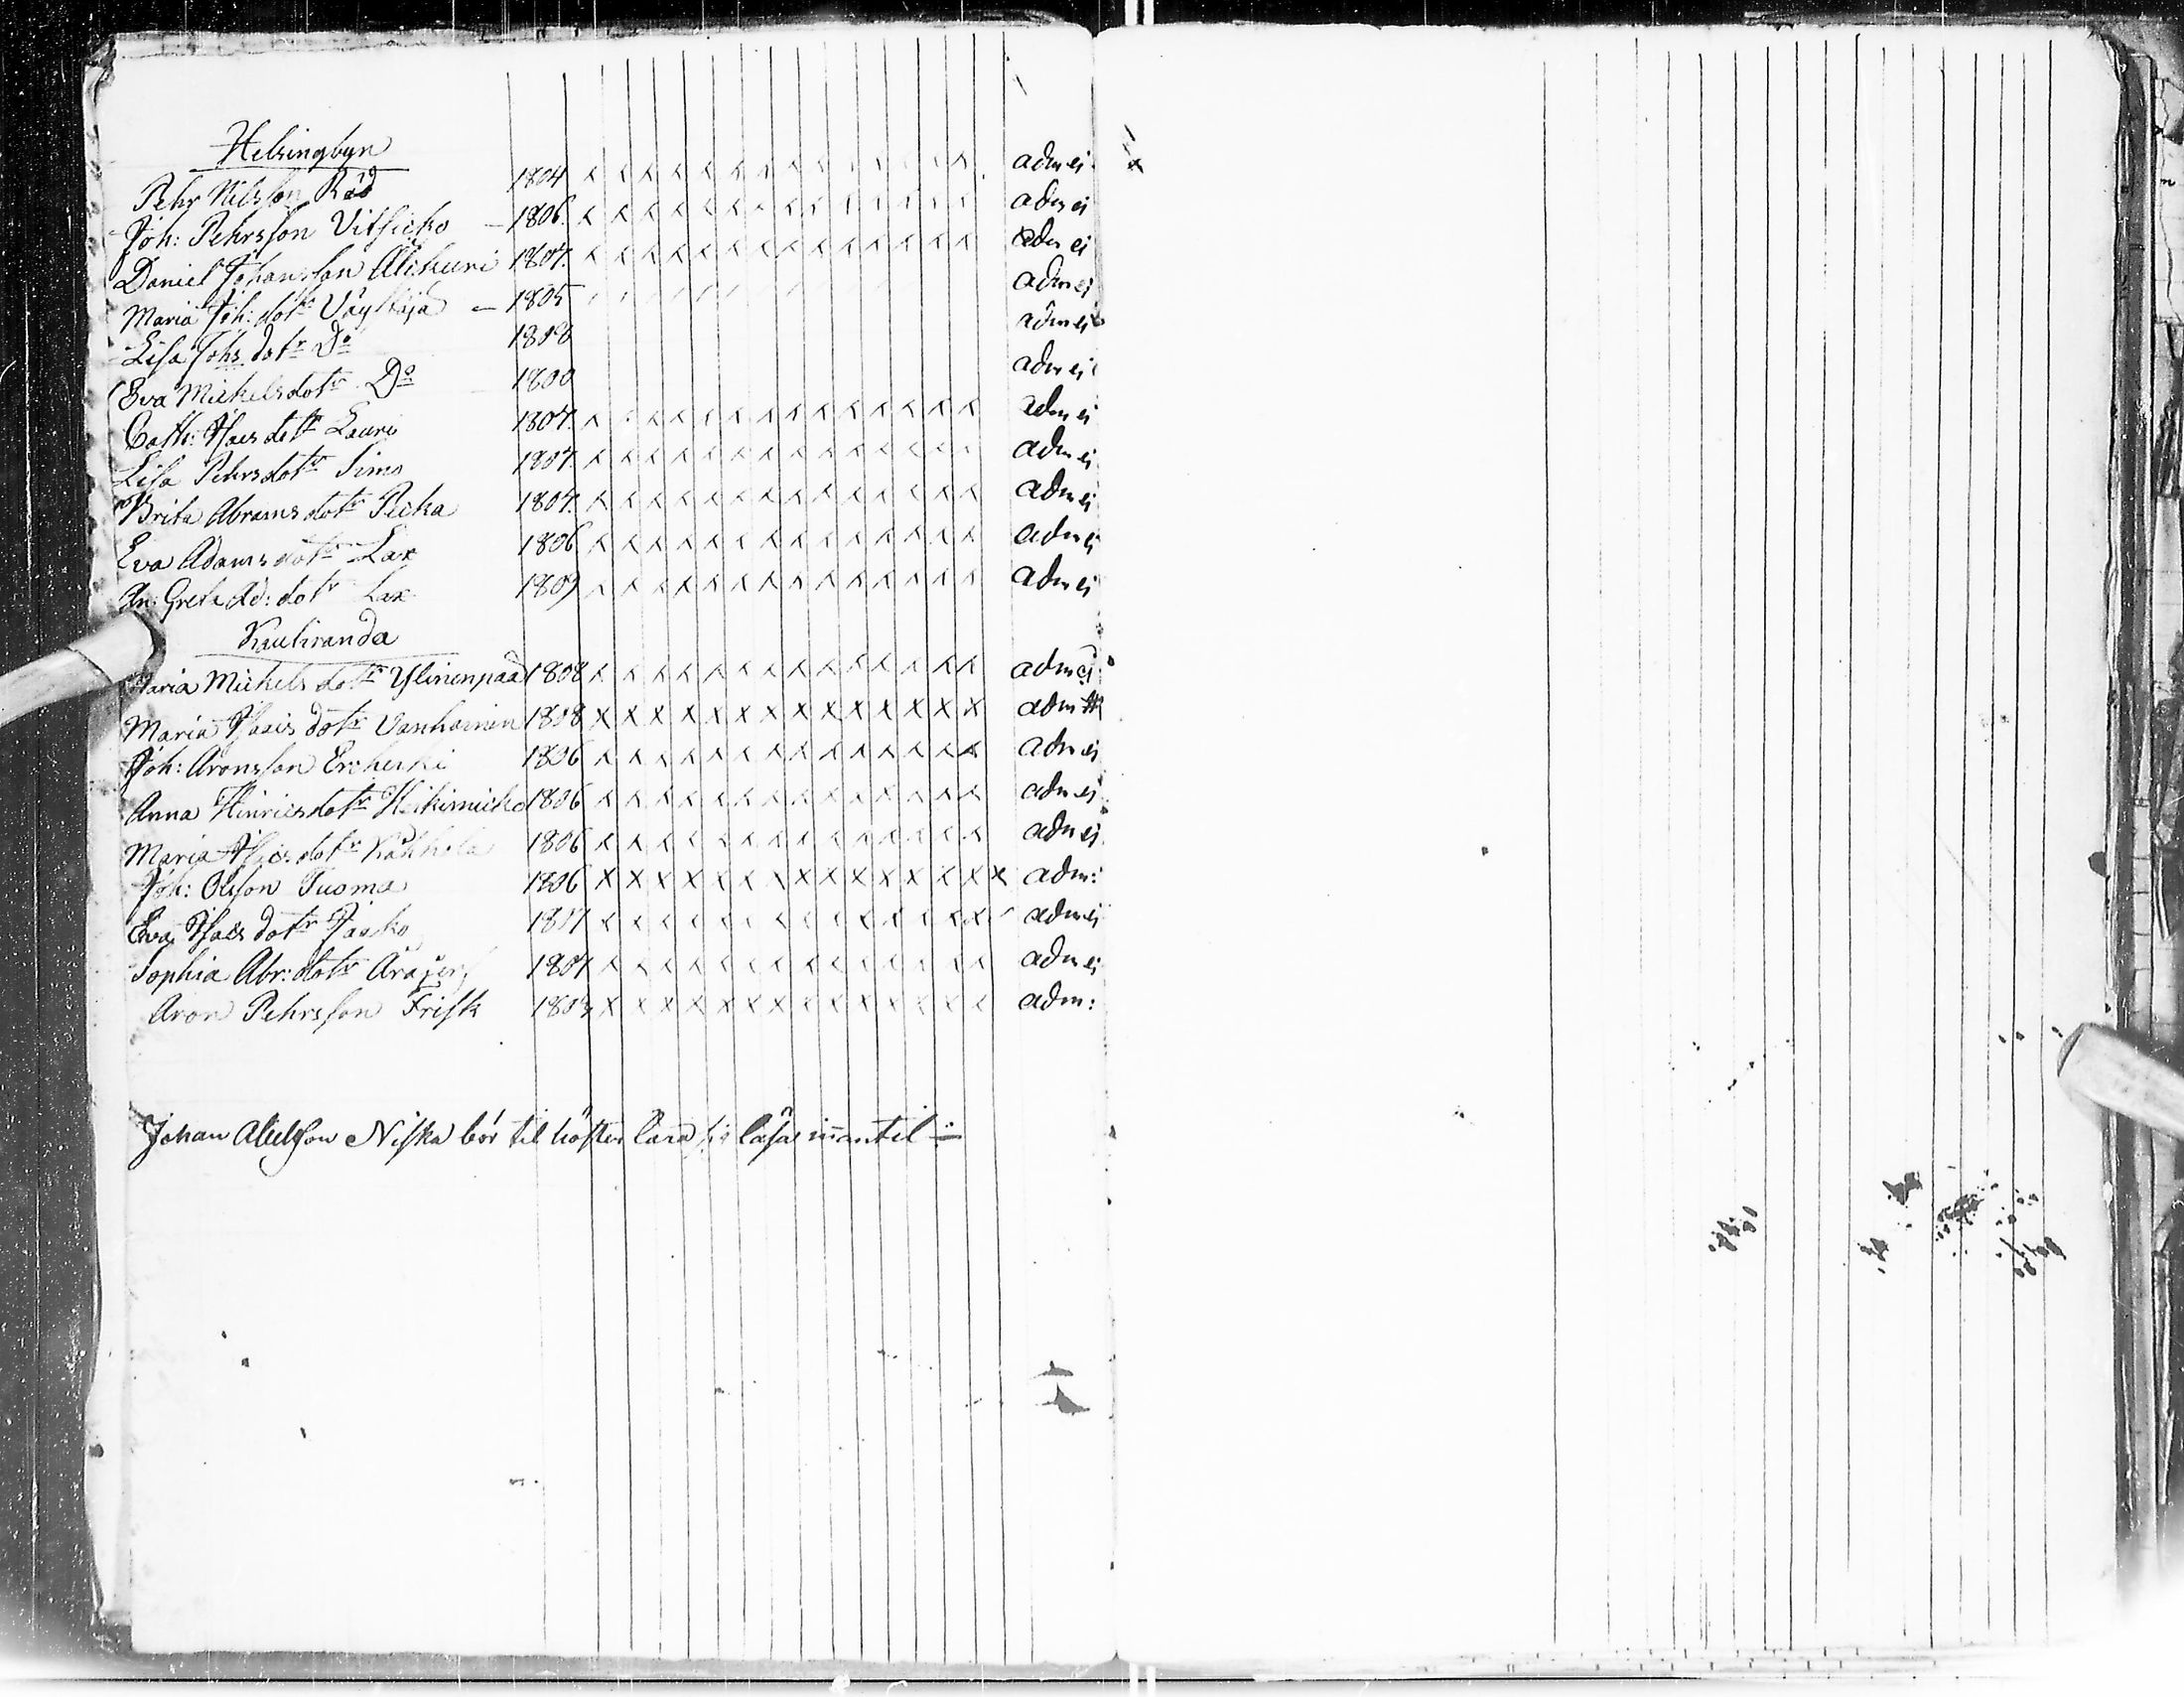 Helsingbyn
Pehr Nilsson Räd 1804 adm ej
Joh: Pehrsson Vitsicko 1806. adm ej
Daniel Johansson Alikuri 1807. adm ej
Maria Joh: dotr 1805 adm ej
Lisa Johs dotr Do 1808 adm ej
Eva Michelsdotr Do 1800 adm ej
Cath: Isacs dotr Lauri 1807. adm ej
Lisa Pehrsdotr Simo 1807. adm ej
Brita Abrams dotr Picka 1807. adm ej
Eva Adams dotr Lax 1806 adm ej
An: Greta Ad: dotr Lax 1809 adm ej
Kauliranda
Maria Michels dotr Ylinenpää 1808 adm ej
Maria Isacs dotr Vanhainen 1808 adm
Joh: Aronsson 1806 adm ej
Anna Hinricsdotr Heikimicko 1806 adm ej
Maria Isacs dotr 1806 adm ej
Joh: Olsson Tuoma 1806 adm:
Eva Isacs dotr 1807 adm ej
Sophia Abr: dotr 1807 adm ej
Aron Pehrsson Frisk 1803 adm:
Johan Abelsson Niska bör til hösten lära sig läsa innantil